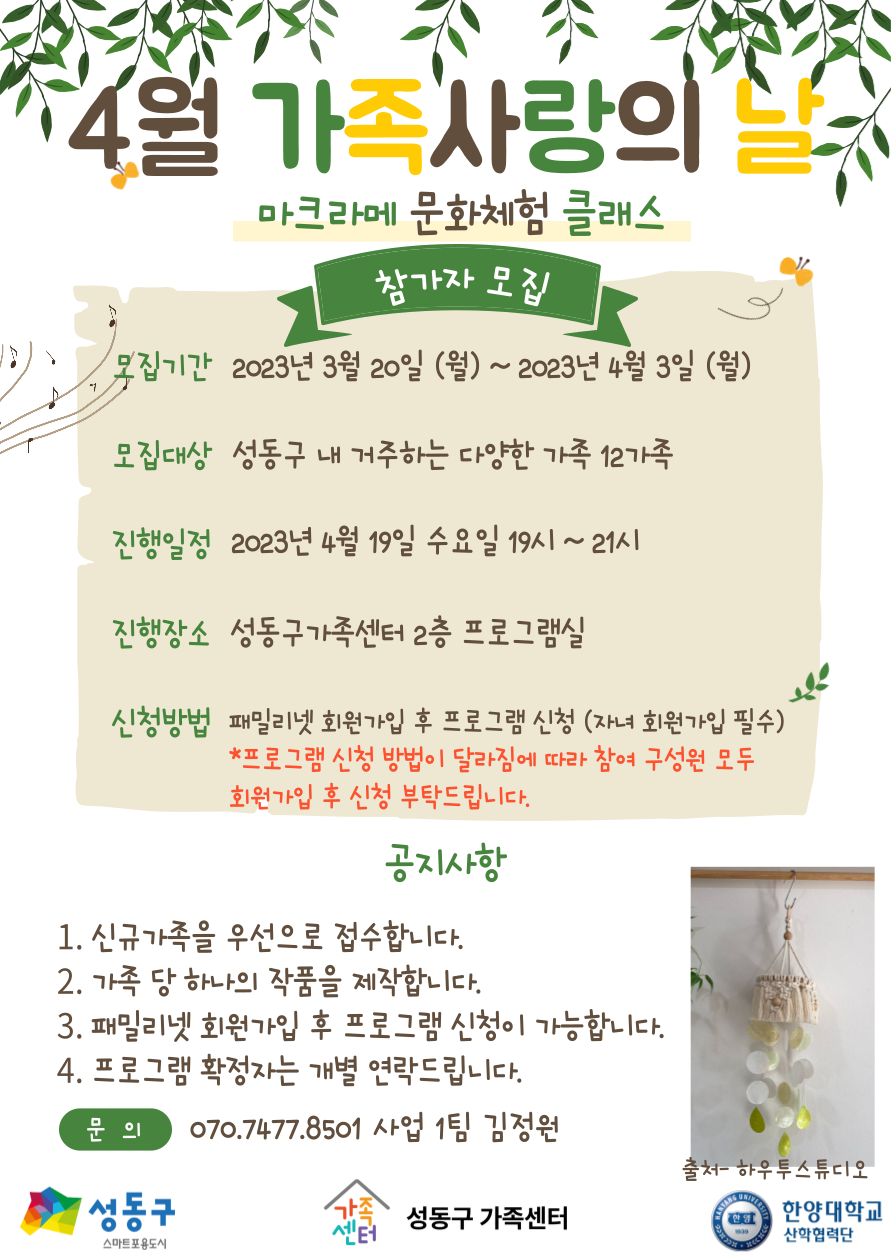 4월 가족사랑의 날
마크라메 문화체험 클래스
참가자 모집
모집기간 2023년 3월 20일 (월) ~ 2023년 4월 3일 (월)
모집대상 성동구 내 거주하는 다양한 가족 12가족
진행일정 2023년 4월 19일 수요일 19시 ~ 21시
진행장소 성동구가족센터 2층 프로그램실
신청방법 패밀리넷 회원가입 후 프로그램 신청 (자녀 회원가입 필수)
*프로그램 신청 방법이 달라짐에 따라 참여 구성원 모두
회원가입 후 신청 부탁드립니다.
공지사항
1. 신규가족을 우선으로 접수합니다.
2. 가족 당 하나의 작품을 제작합니다.
3. 패밀리넷 회원가입 후 프로그램 신청이 가능합니다.
4. 프로그램 확정자는 개별 연락드립니다.
문 의 070.7477.8501 사업 1팀 김정원
출처- 하우투스튜디오
성동구
스마트포용도시
가족
센터
성동구 가족센터
HANYANG UNIVERSITY
한양
1939
한양대학교
산학협력단